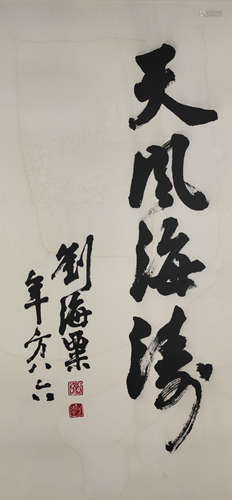 天风海涛
劉海粟
年方八六